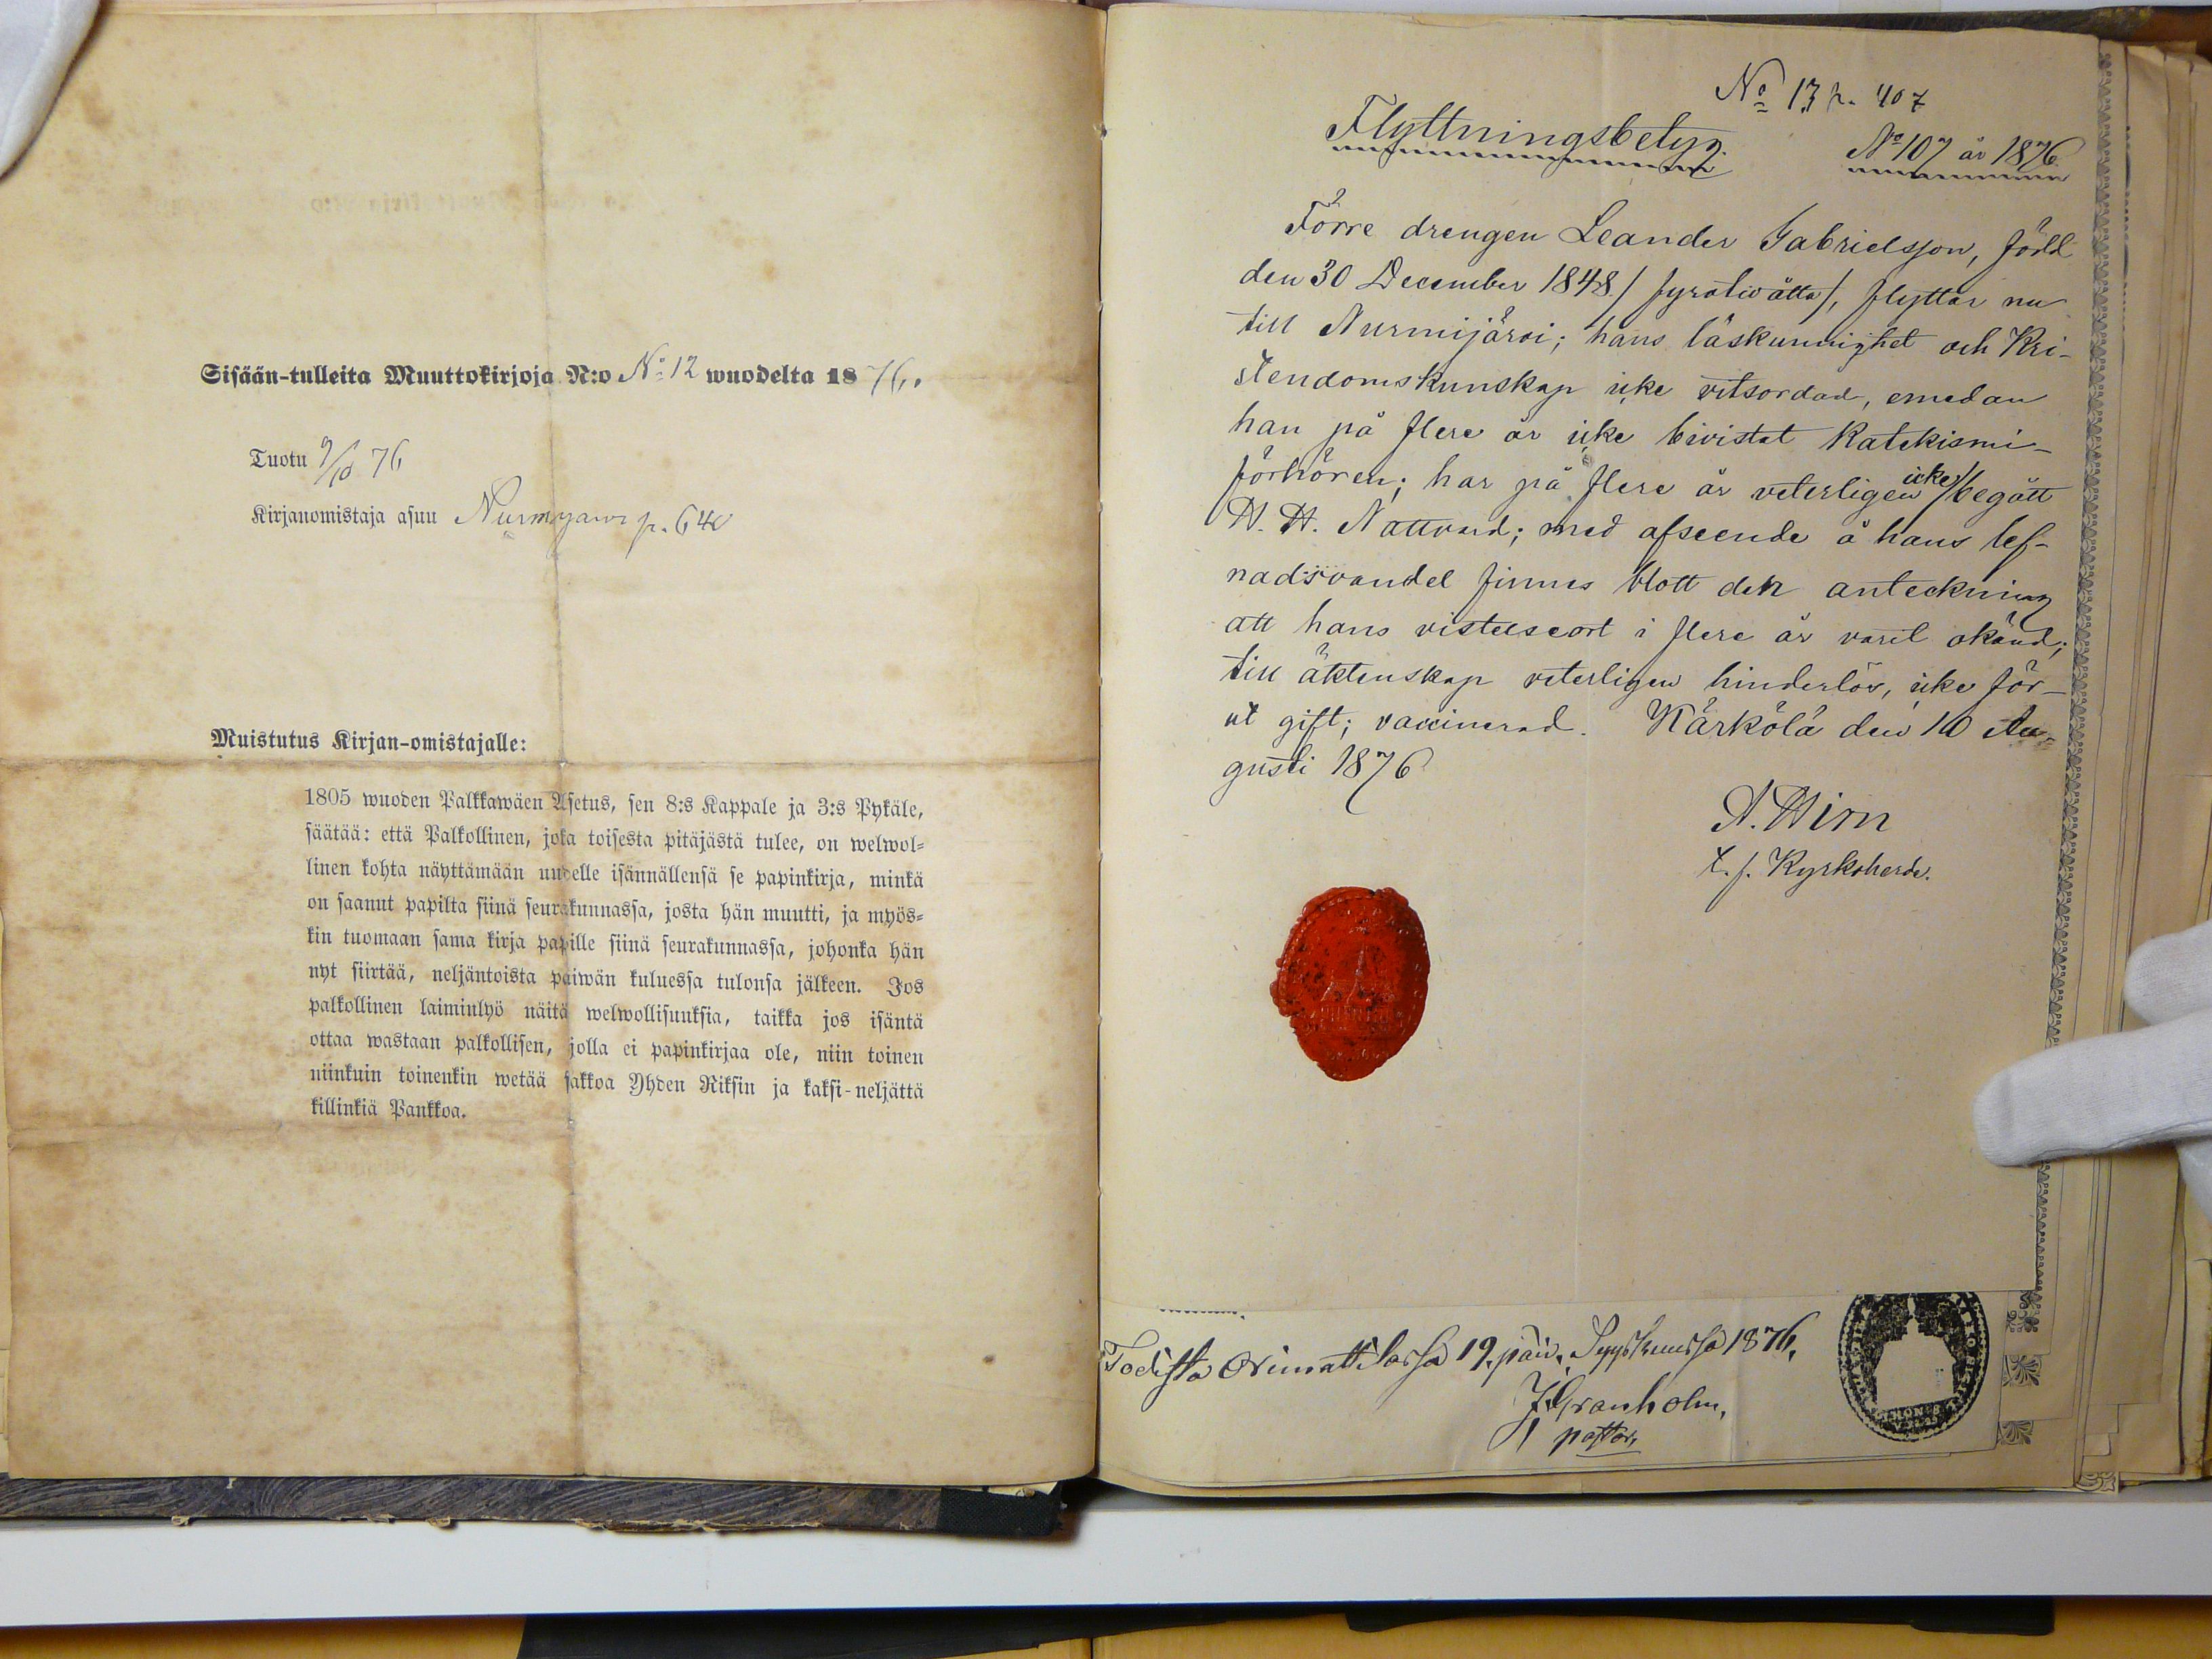 Sisään-tulleita Muuttokirjoja N:o No 12 wuodelta 1876.
Tuotu 9/10 76
Kirjanomistaja asuu Nurmijärvi p. 640
Muistutus Kirjan-omistajalle:
1805 wuoden Palkkawäen Asetus, sen 8:s Kappale ja 3:s Pykäle,
säätää: että Palkollinen, joka toisesta pitäjästä tulee, on welwol-
linen kohta näyttämään uudelle isännällensä se papinkirja, minkä
on saanut papilta siinä seurakunnassa, josta hän muutti, ja myös-
kin tuomaan sama kirja papille siinä seurakunnassa, johonka hän
nyt siirtää, neljäntoista päiwän kuluessa tulonsa jälkeen. Jos
palkollinen laiminlyö näitä welwollisuuksia, taikka jos isäntä
ottaa wastaan palkollisen, jolla ei papinkirjaa ole, niin toinen
niinkuin toinenkin wetää sakkoa Yhden Riksin ja kaksi-neljättä
killinkiä Pankkoa.
No 13 p. 407
Flyttningsbetyg.
No 107 år 1876.
Förre drengen Leander Gabrielsson, född
den 30 December 1848 / fyratioåtta /, flyttar nu
till Nurmijärvi; hans läskunnighet och Kri-
stendomskunskap icke vitsordad, emedan
han på flere år icke bivistat Katekismi-
förhören; har på flere år veterligen icke begått
H. H. Nattvard; med afseende å hans lef-
nadsvandel finnes blott den anteckning
att hans vistelseort i flere år varit okänd;
till äktenskap veterligen hinderlös, icke för-
ut gift; vaccinerad. Kärkölä den 10 Au-
gusti 1876
A. Hirn
t. f. Kyrkoherde.
Todistaa Orimattilassa 19. päiv. Syyskuussa 1876,
J. Granholm,
pastor,